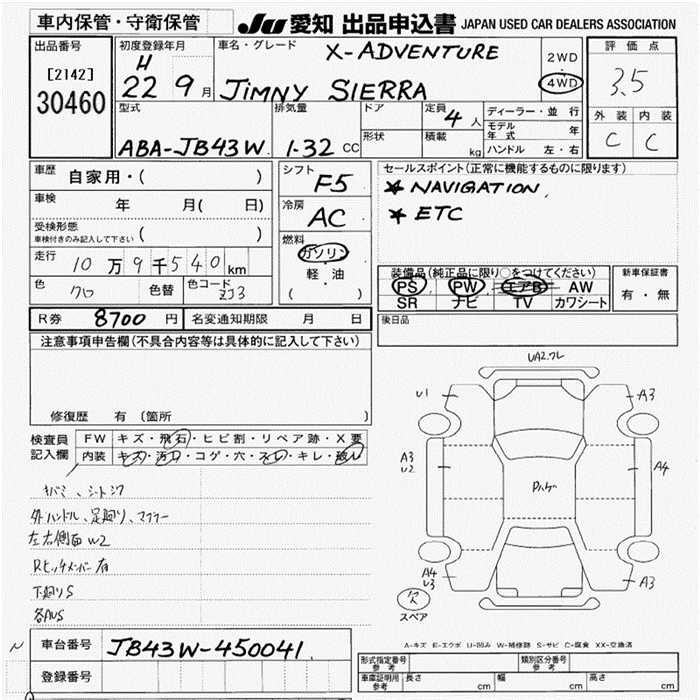 車内保管・守衛保管
JU 愛知 出品申込書 JAPAN USED CAR DEALERS ASSOCIATION
出品番号 初度登録年月 車名・グレード X-ADVENTURE 2WD ・ 4WD 評価点
[2142] H 3.5
30460 22 9月 JIMNY SIERRA
型式 排気量 ドア 定員 4人 ディーラー・並行 外装 内装
モデル年式 年 C C
ABA-JB43W 1.32 CC 形状 積載 kg ハンドル 左・右
車歴 自家用・( ) シフト F5 セールスポイント(正常に機能するものに限ります)
★ NAVIGATION
車検 年 月( 日) 冷房 AC ★ ETC
受検形態 ( )
車検付きのみ記入して下さい
燃料 ガソリン
走行 10万9千540km 軽・油 装備品(純正品に限り○をつけてください) 新車保証書
( ) PS PW エアB AW 有・無
色 クロ 色替 色コード ZJ3 SR ナビ TV カワシート
R券 8700円 名変通知期限 月 日 後日品
注意事項申告欄(不具合内容等は具体的に記入して下さい)
修復歴 有(箇所 )
検査員記入欄 FW キズ・飛石・ヒビ割・リペア跡・X要
内装 キズ・汚れ・コゲ・穴・スレ・キレ・破レ
キバミ、シートシワ
外ハンドル、足廻り、マフラー
左右側面W2
Rヒッチメンバー有
下廻りS
各AUS
UA2.ワレ
U1 A3
A3
U2 A4
Dハゲ
A4
U3 A3
欠
スペア
N
車台番号 JB43W-450041
登録番号
A-キズ E-エクボ U-凹み W-補修跡 S-サビ C-腐食 XX-交換済
形式指定番号 参考 類別区分番号 参考
車庫証明用 参考 長さ cm 幅 cm 高さ cm